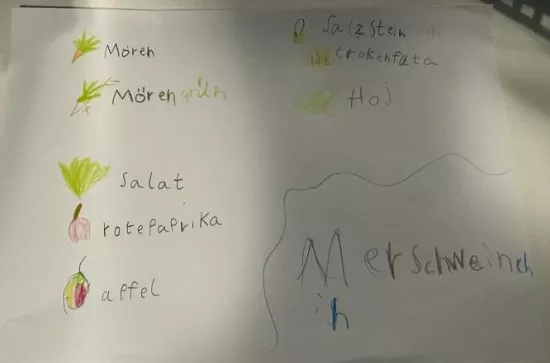 Mören
Mören grün
Salat
rotepaprika
apfel
Salzstein
trokenfuta
Hoj
Merschweinch
in